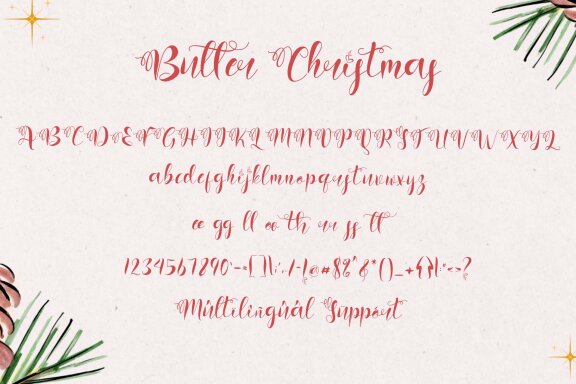 Butter Christmas
ABCDEFGHIJKLMNOPQRSTUVWXYZ
abcdefghijklmnopqrstuvwxyz
ee gg ll oo th rr ss tt
1234567890`-=[]\;',./~!@#$%^&*()_+{}|:"<>?
Múltilíngúál Support